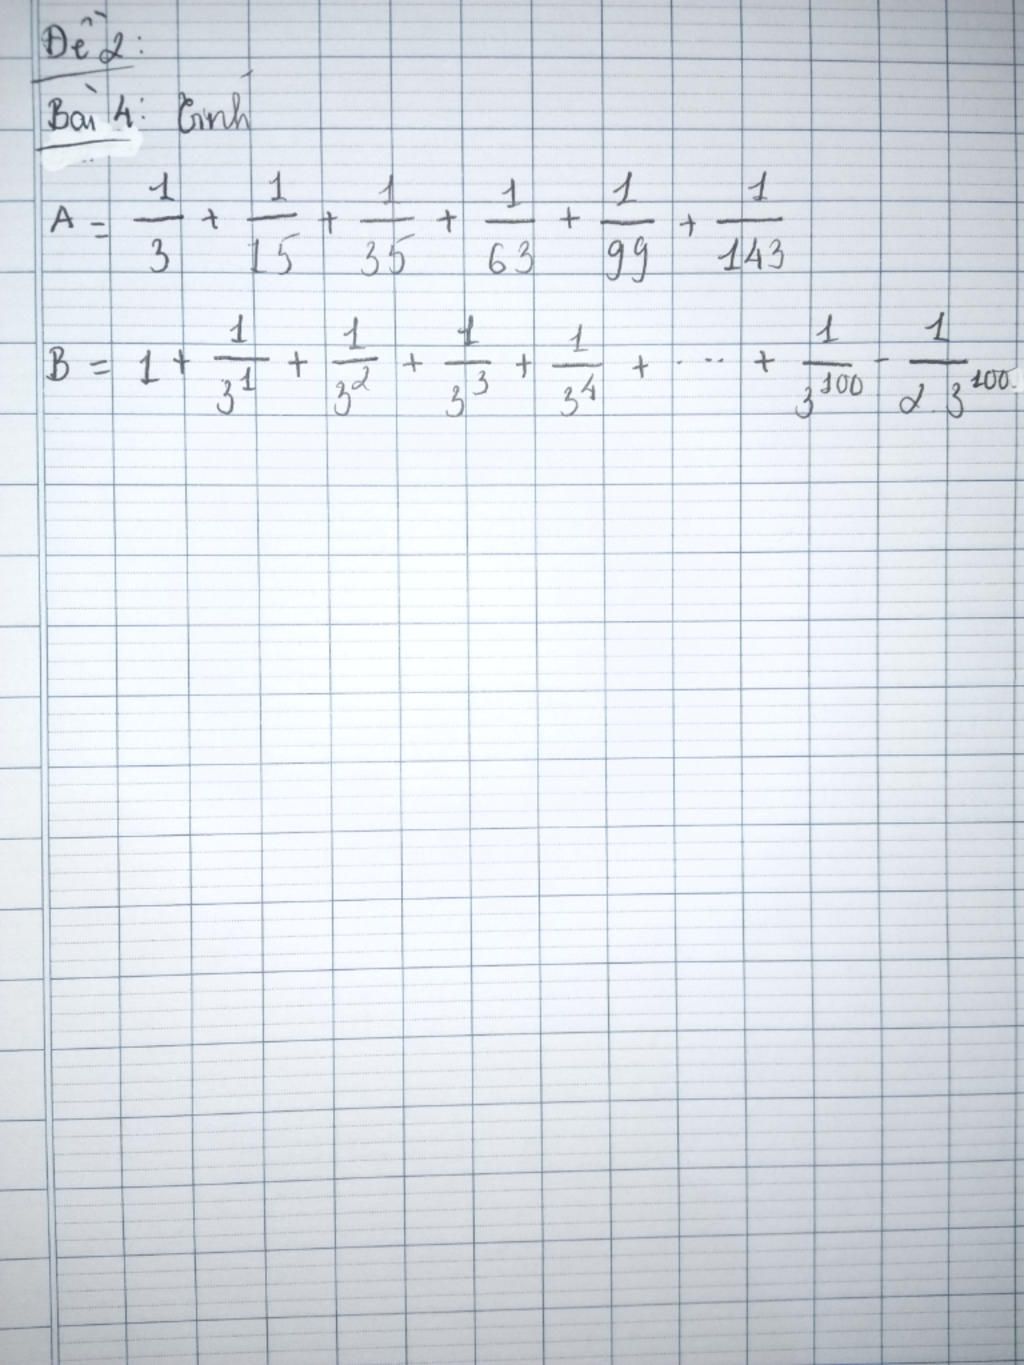 Đề 2:
Bài 4: Tính
A = 1/3 + 1/15 + 1/35 + 1/63 + 1/99 + 1/143
B = 1 + 1/3^1 + 1/3^2 + 1/3^3 + 1/3^4 + ... + 1/3^100 - 1/2.3^100.